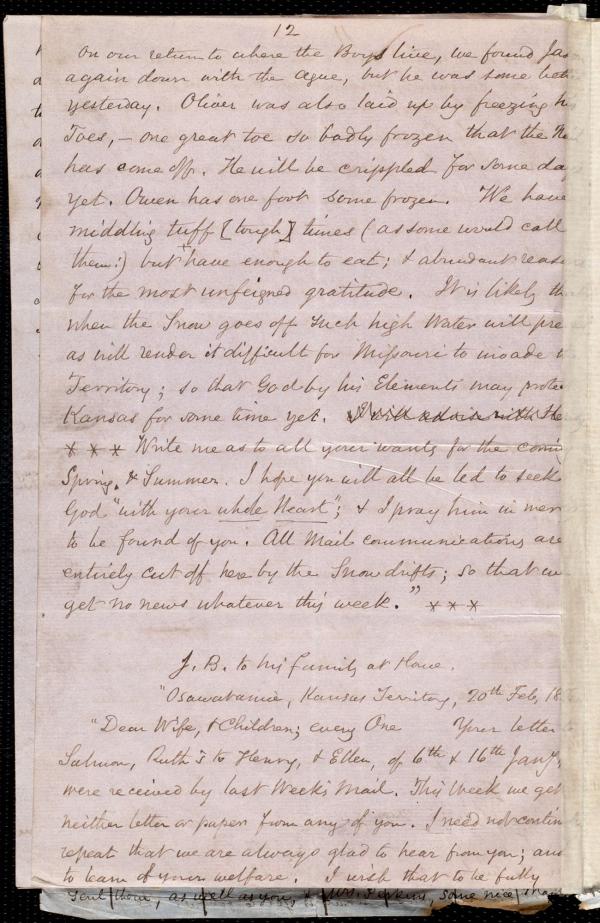 12
On our return to where the Boys live, we found Jas
again down with the ague, but he was some bett
yesterday. Oliver was also laid up by freezing h
Toes, — one great toe so badly frozen that the Na
has come off. He will be crippled for some da
yet. Owen has one foot some frozen. We have
middling tuff [tough] times (as some would call
them:) but have enough to eat; & abundant reas
for the most unfeigned gratitude. It is likely th
when the Snow goes off such high Water will pre
as will render it difficult for Missouri to invade
Territory; so that God by his Elements may prote
Kansas for some time yet. I will advise with the
* * * Write me as to all your wants for the comin
Spring, & Summer. I hope you will all be led to seek
God "with your whole Heart"; & I pray him in mer
to be found of you. All Mail communications are
entirely cut off here by the Snow drifts; so that we
get no news whatever this week." * * *
J. B. to his family at Home.
"Osawatamie, Kansas Territory, 20th Feb, 18
"Dear Wife, & Children; every One Your letter
Salmon, Ruth's to Henry, & Ellen, of 6th & 16th Jany,
were received by last Weeks Mail. This Week we get
neither letter or paper from any of you. I need not contin
repeat that we are always glad to hear from you; and
to learn of your welfare. I wish that to be fully
sent them, as well as you, & Mrs. Perkins, some nice